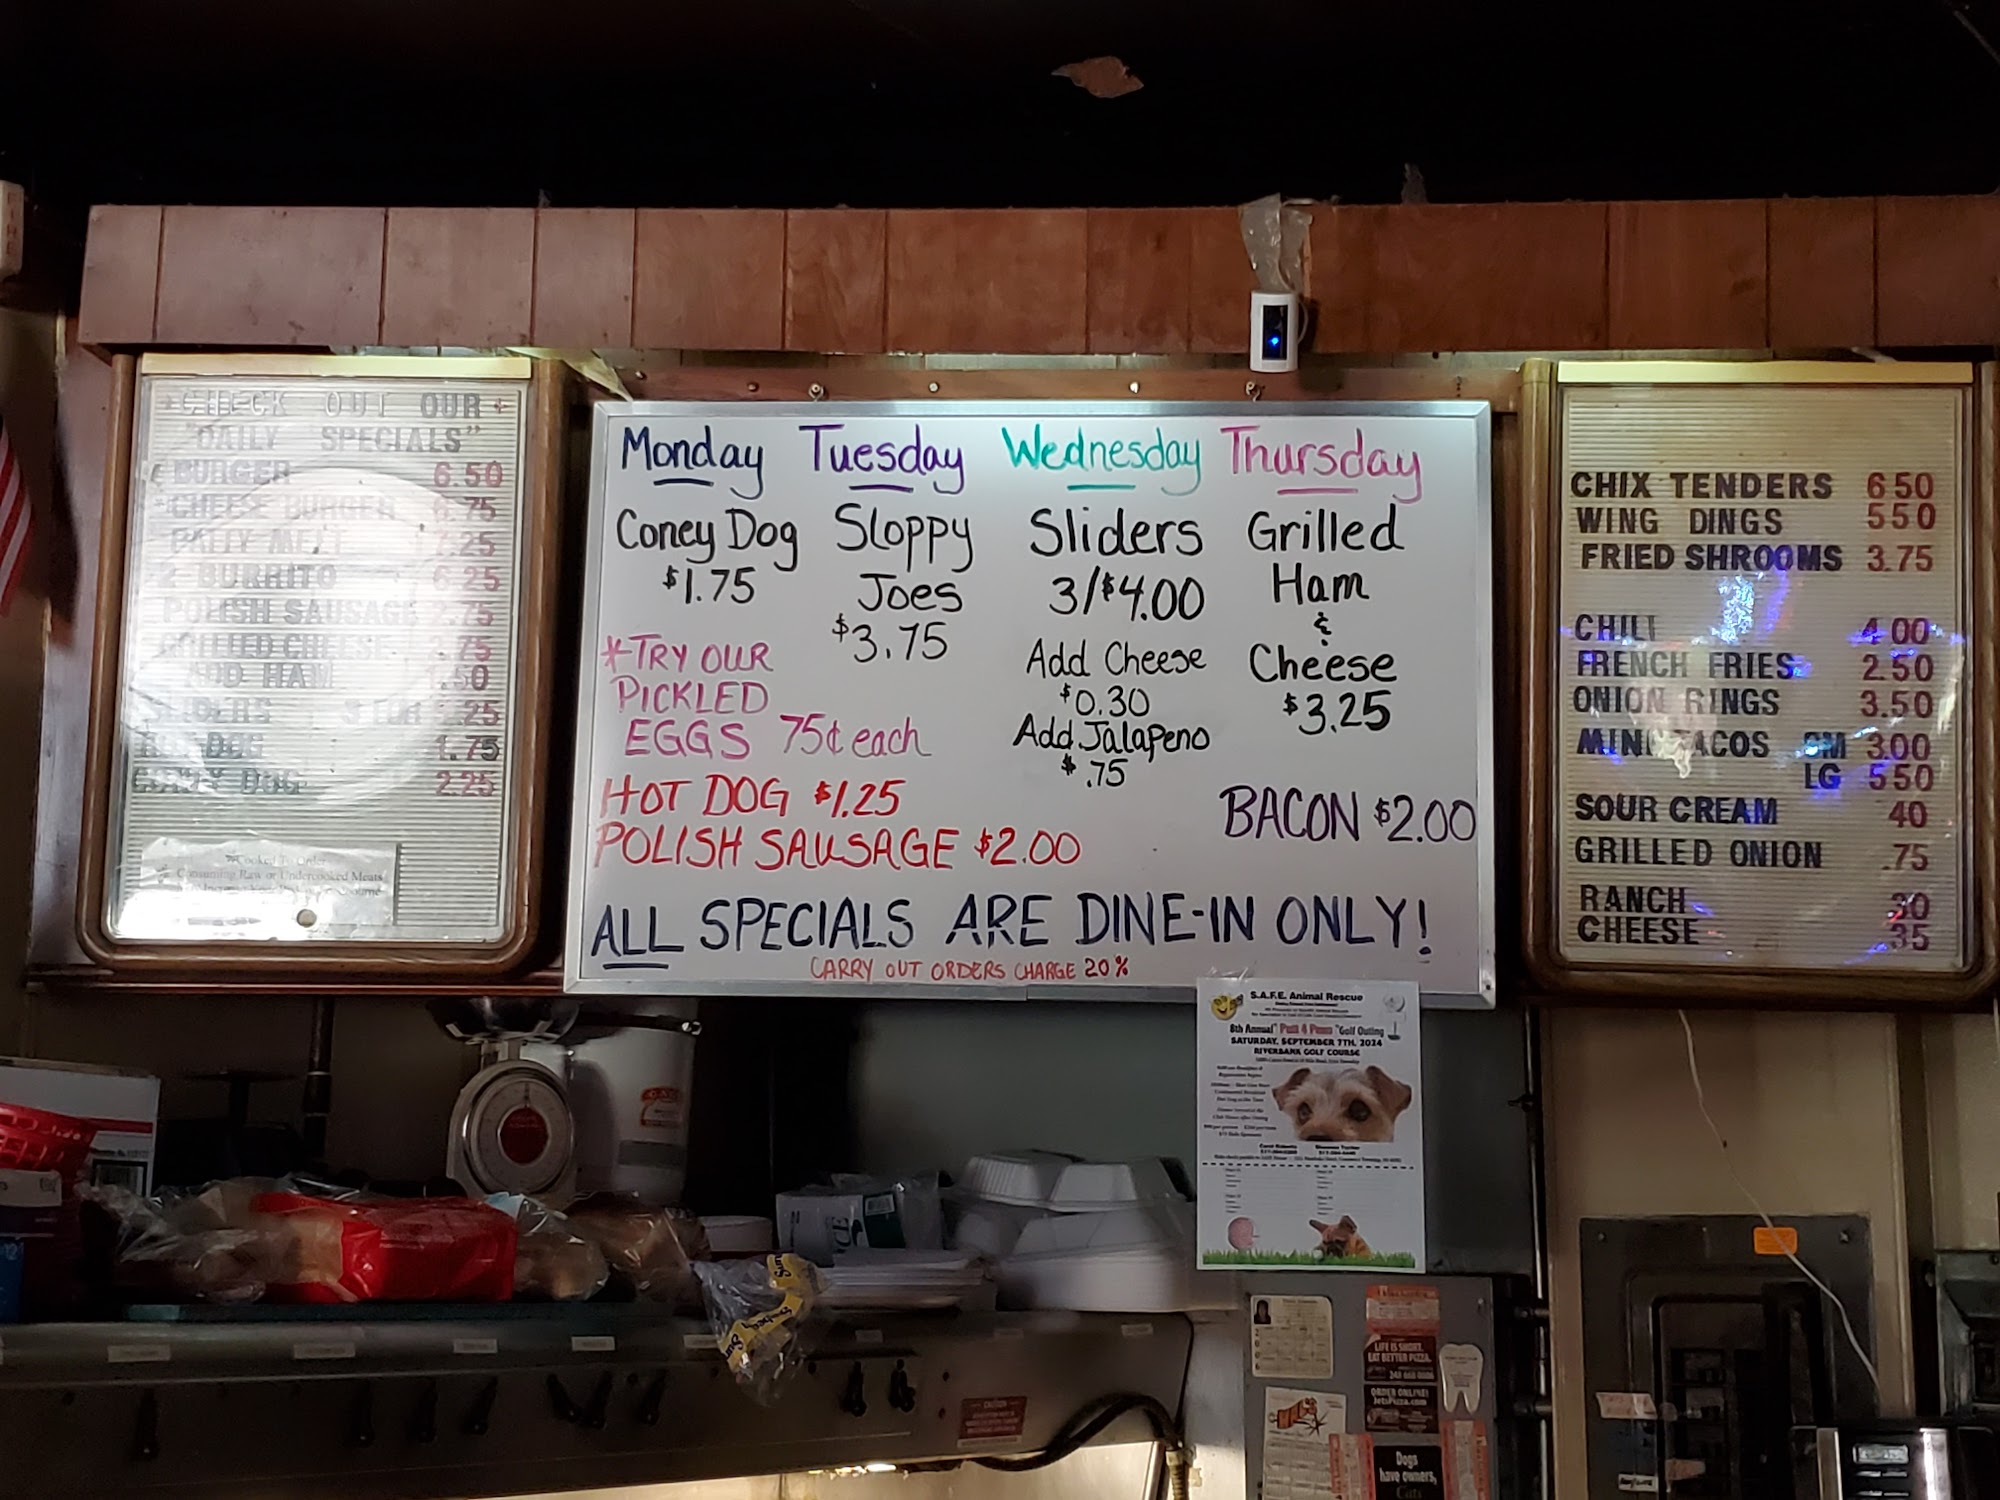 CHECK OUT OUR
"DAILY SPECIALS"
BURGER 6.50
CHEESE BURGER 6.75
PATTY MELT 7.25
2 BURRITO 6.25
POLISH SAUSAGE 2.75
GRILLED CHEESE .75
ADD HAM 1.50
SLIDERS 3 FOR .25
HOT DOG 1.75
CONEY DOG 2.25
Cooked To Order
Consuming Raw or Undercooked Meats
Monday Tuesday Wednesday Thursday
Coney Dog
$1.75
*TRY OUR
PICKLED
EGGS 75¢ each
HOT DOG $1.25
POLISH SAUSAGE $2.00
Sloppy
Joes
$3.75
Sliders
3/$4.00
Add Cheese
$0.30
Add Jalapeno
$.75
Grilled
Ham
&
Cheese
$3.25
BACON $2.00
ALL SPECIALS ARE DINE-IN ONLY!
CARRY OUT ORDERS CHARGE 20%
CHIX TENDERS 6 50
WING DINGS 5 5 0
FRIED SHROOMS 3.75
CHILI 4 00
FRENCH FRIES 2.50
ONION RINGS 3.50
MINI TACOS SM 3.00
LG 5 50
SOUR CREAM 40
GRILLED ONION .75
RANCH 30
CHEESE 35
S.A.F.E. Animal Rescue
8th Annual "Putt 4 Paws" Golf Outing
SATURDAY, SEPTEMBER 7TH, 2024
RIVERBANK GOLF COURSE
LIFE IS SHORT.
EAT BETTER PIZZA.
ORDER ONLINE!
JetsPizza.com
Dogs
have owners,
Cats
CAUTION